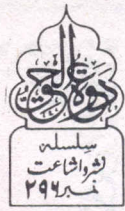 دعوة الحق
سلسلہ
نشر و اشاعت
نمبر ۲۹۶